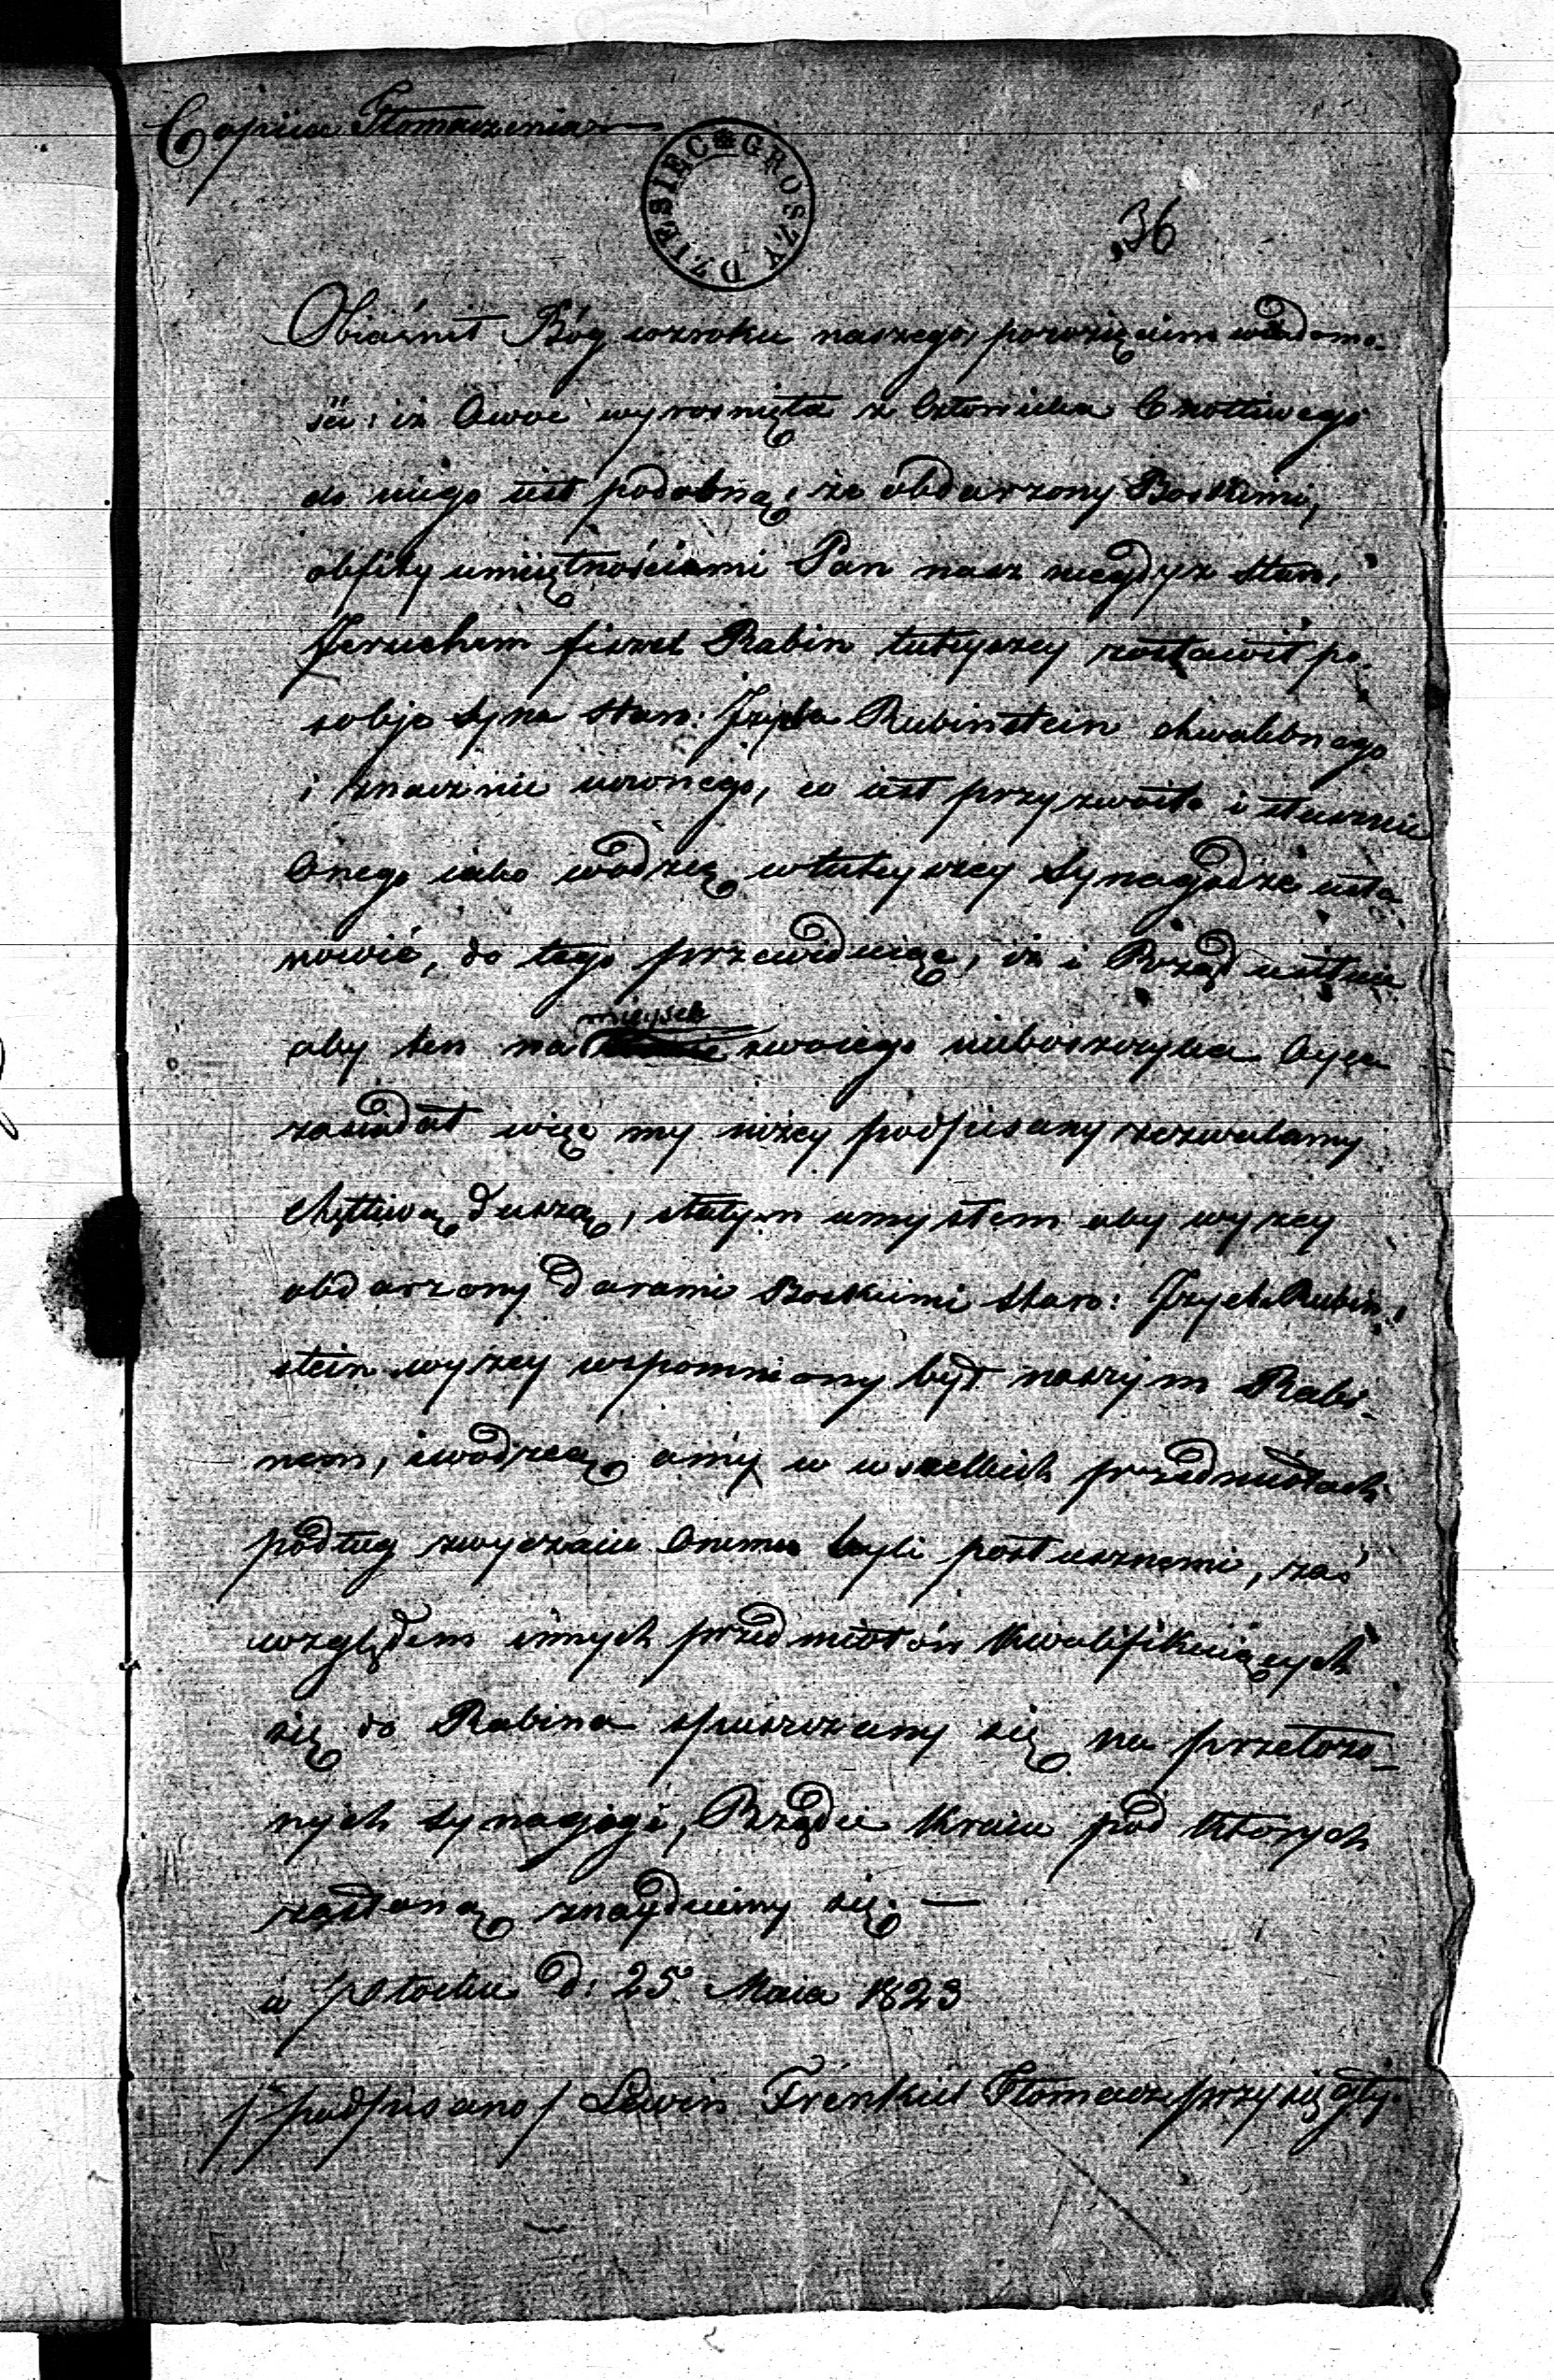 Copiia Tłomaczenia
DZIESIĘC GROSZY
36
Obiaśnił Bóg wzroku naszego, powzięciem wiadomo-
ści: iż Owoc wyrosnięta z Człowieka Cnotliwego
do niego iest podobną, że obdarzony Boskiemi,
obfity umieiętnościami Pan nasz niegdyż Star:
Jeruchem fiszel Rabin tuteyszey zostawił po
sobje syna Star: Izyka Rubinstein chwalebnego
i znacznie uczonego, co iest przyzwoite i słusznie
Onego iako wodzeą w tuteyszey Synagodze usta
nowić, do tego przewiduiąc, iż i Rząd
aby ten na mieysca swoiego nieboszczyka Oyca
zasiadał więc my niżey podpisany zezwalamy
chętliwą duszą, stałym umysłem aby wyżey
obdarzony darami Boskiemi Star: Izyck Rubin,
stein wyżey wspomniony był naszym Rabi-
nem, i wodzeą amy w wszelkich przedmiotach
podług zwyczaiu Onemu byli posłusznemi, zaś
względem innych przedmiotów kwalifikuiących
się do Rabina spuszczamy się na przełożo-
nych synagogi, Rządu Kraiu pod których
zasłoną znayduiemy się. —
w Płocku d: 25 Maia 1823
/podpisano/ Lewin Frenkiel Tłomacz przysięgły.